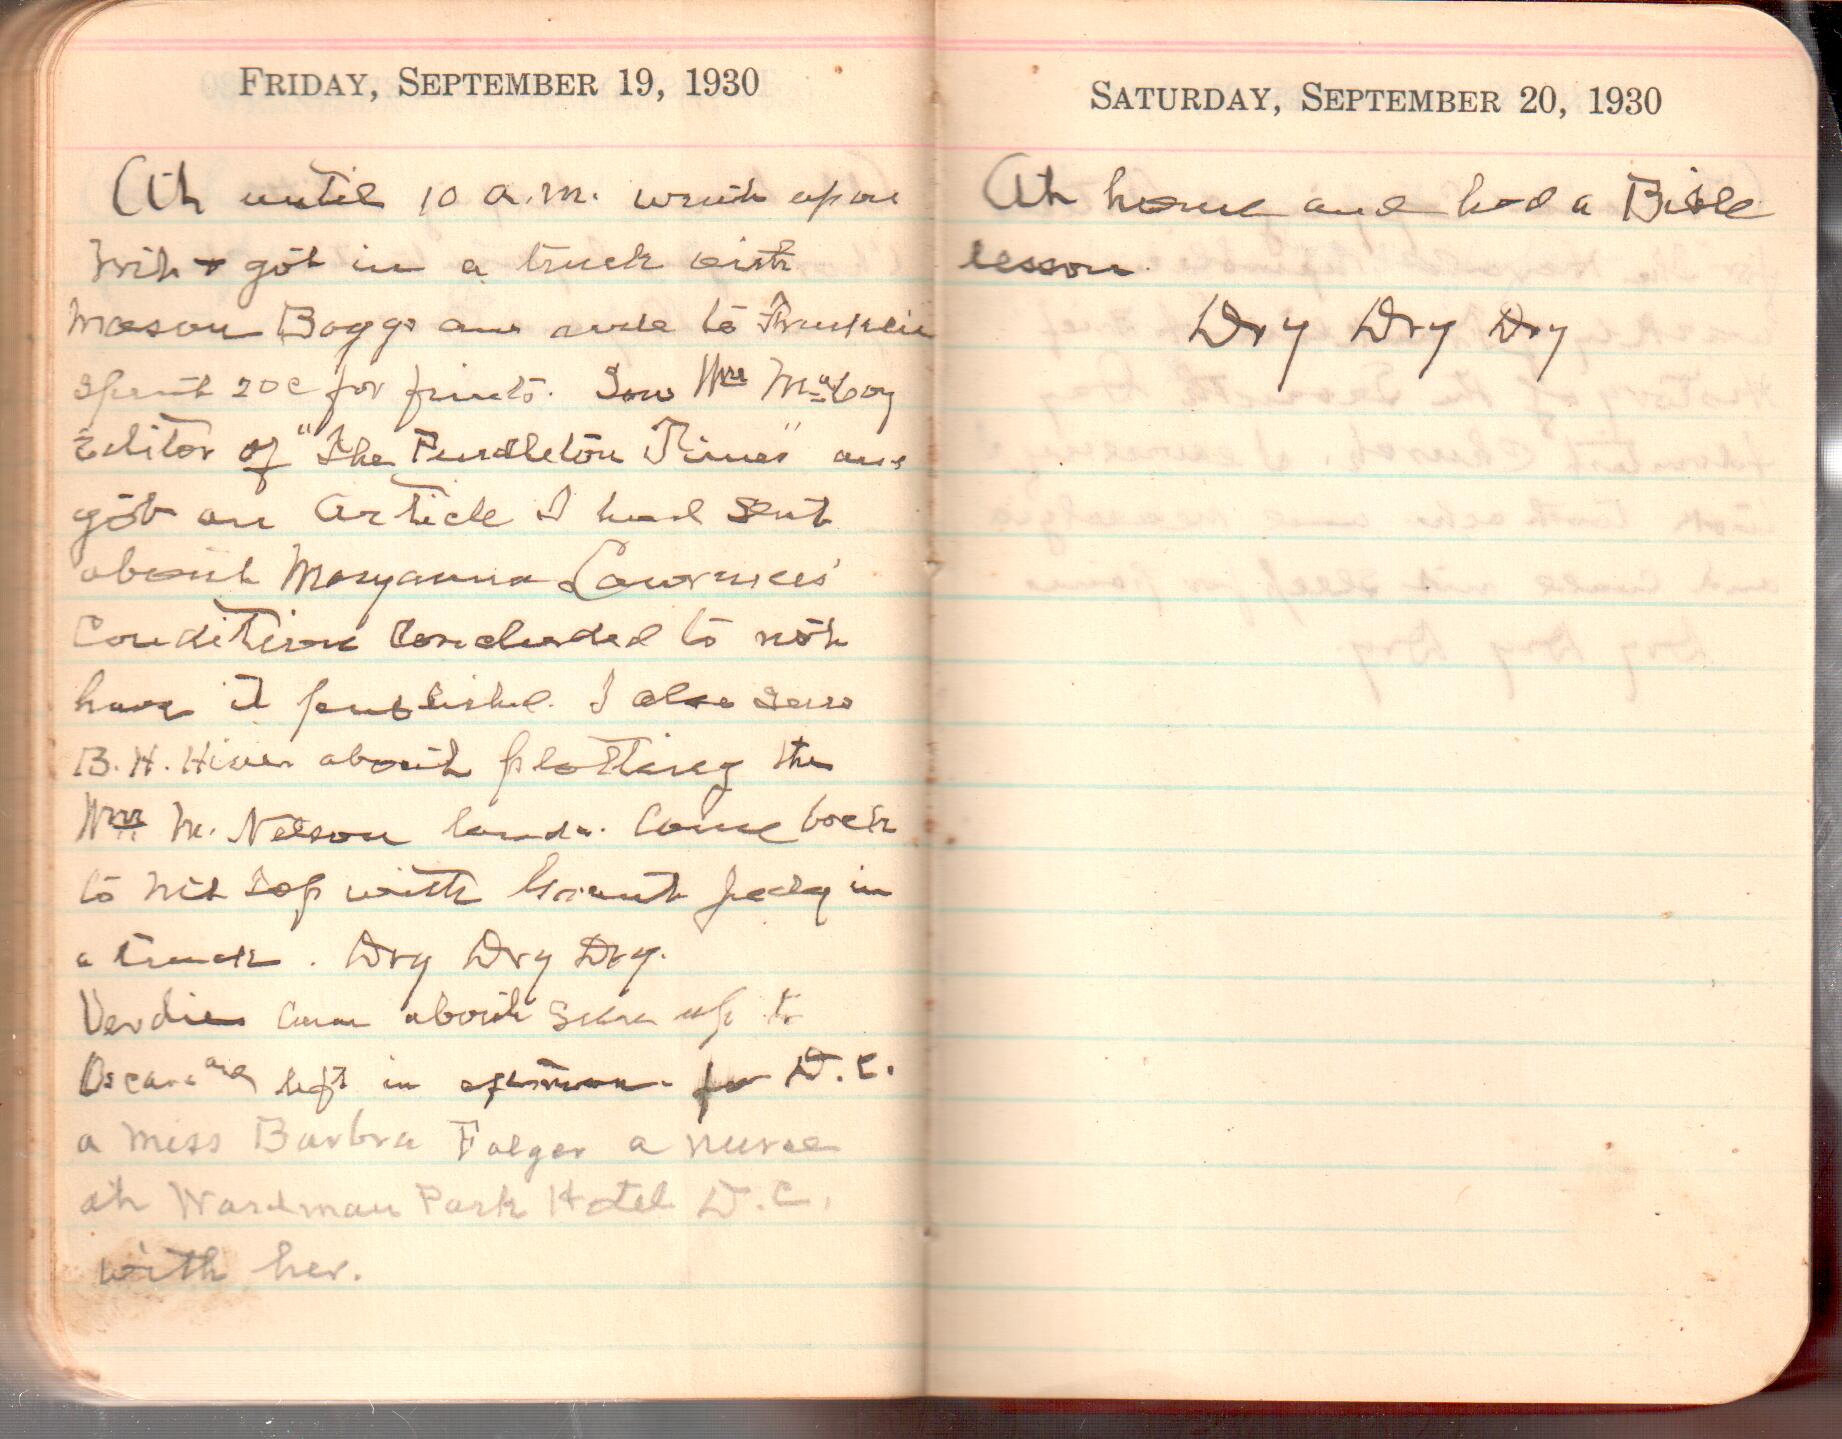 FRIDAY, SEPTEMBER 19, 1930
At until 10 a.m. went upon
got in a truck with
Mason Boggs and rode to Franklin
Spent 20c for fruits. Saw Wm McCoy
Editor of "The Pendleton Times" and
got an article I had sent
about Maryanna Lawrences'
Condition Concluded to not
have it published. I also saw
B. H. Hiner about plotting the
Wm M. Nelson lands. Came back
to top with Grant Judy in
a truck. Dry Dry Dry.
Verdie came about up to
Oscars and left in afternoon for D.C.
a Miss Barbra Folger a nurse
at Wardman Park Hotel D.C.
with her.
SATURDAY, SEPTEMBER 20, 1930
At home and had a Bible
lesson.
Dry Dry Dry